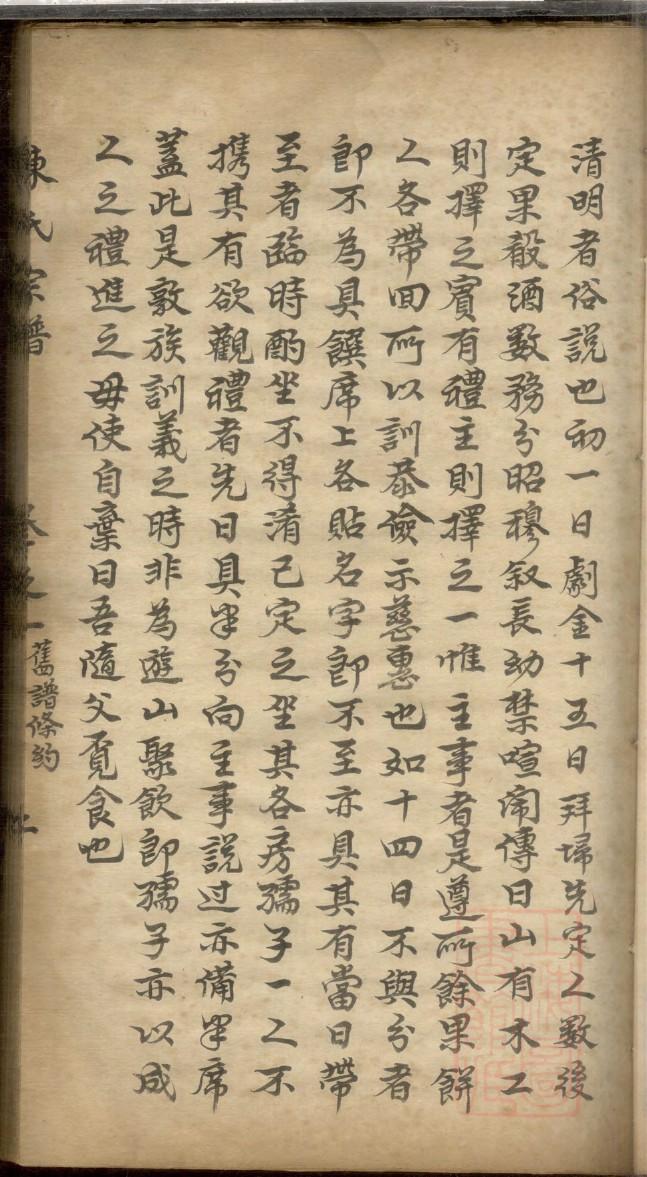 清明者俗說也初一日劇金十五日拜埽先定人數後
定果殽酒數務分昭穆叙長幼禁喧鬧傳曰山有木工
則擇之賓有禮主則擇之一惟主事者是遵所餘果餅
人各帶回所以訓恭儉示慈惠也如十四日不與分者
即不為具饌席上各貼名字即不至亦具其有當日帶
至者臨時酌坐不得淆已定之坐其各房孺子一人不
携其有欲觀禮者先日具半分向主事說过亦備半席
蓋此是敦族訓義之時非為遊山聚飲即孺子亦以成
人之禮進之毋使自棄曰吾隨父覓食也
陳氏宗譜 卷之一 舊譜條約